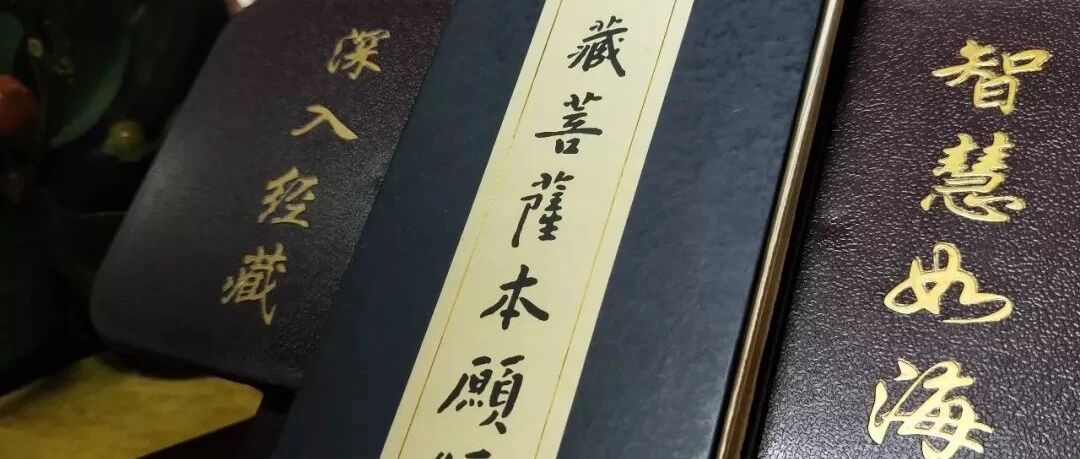 深入经藏
藏菩薩本願
智慧如海